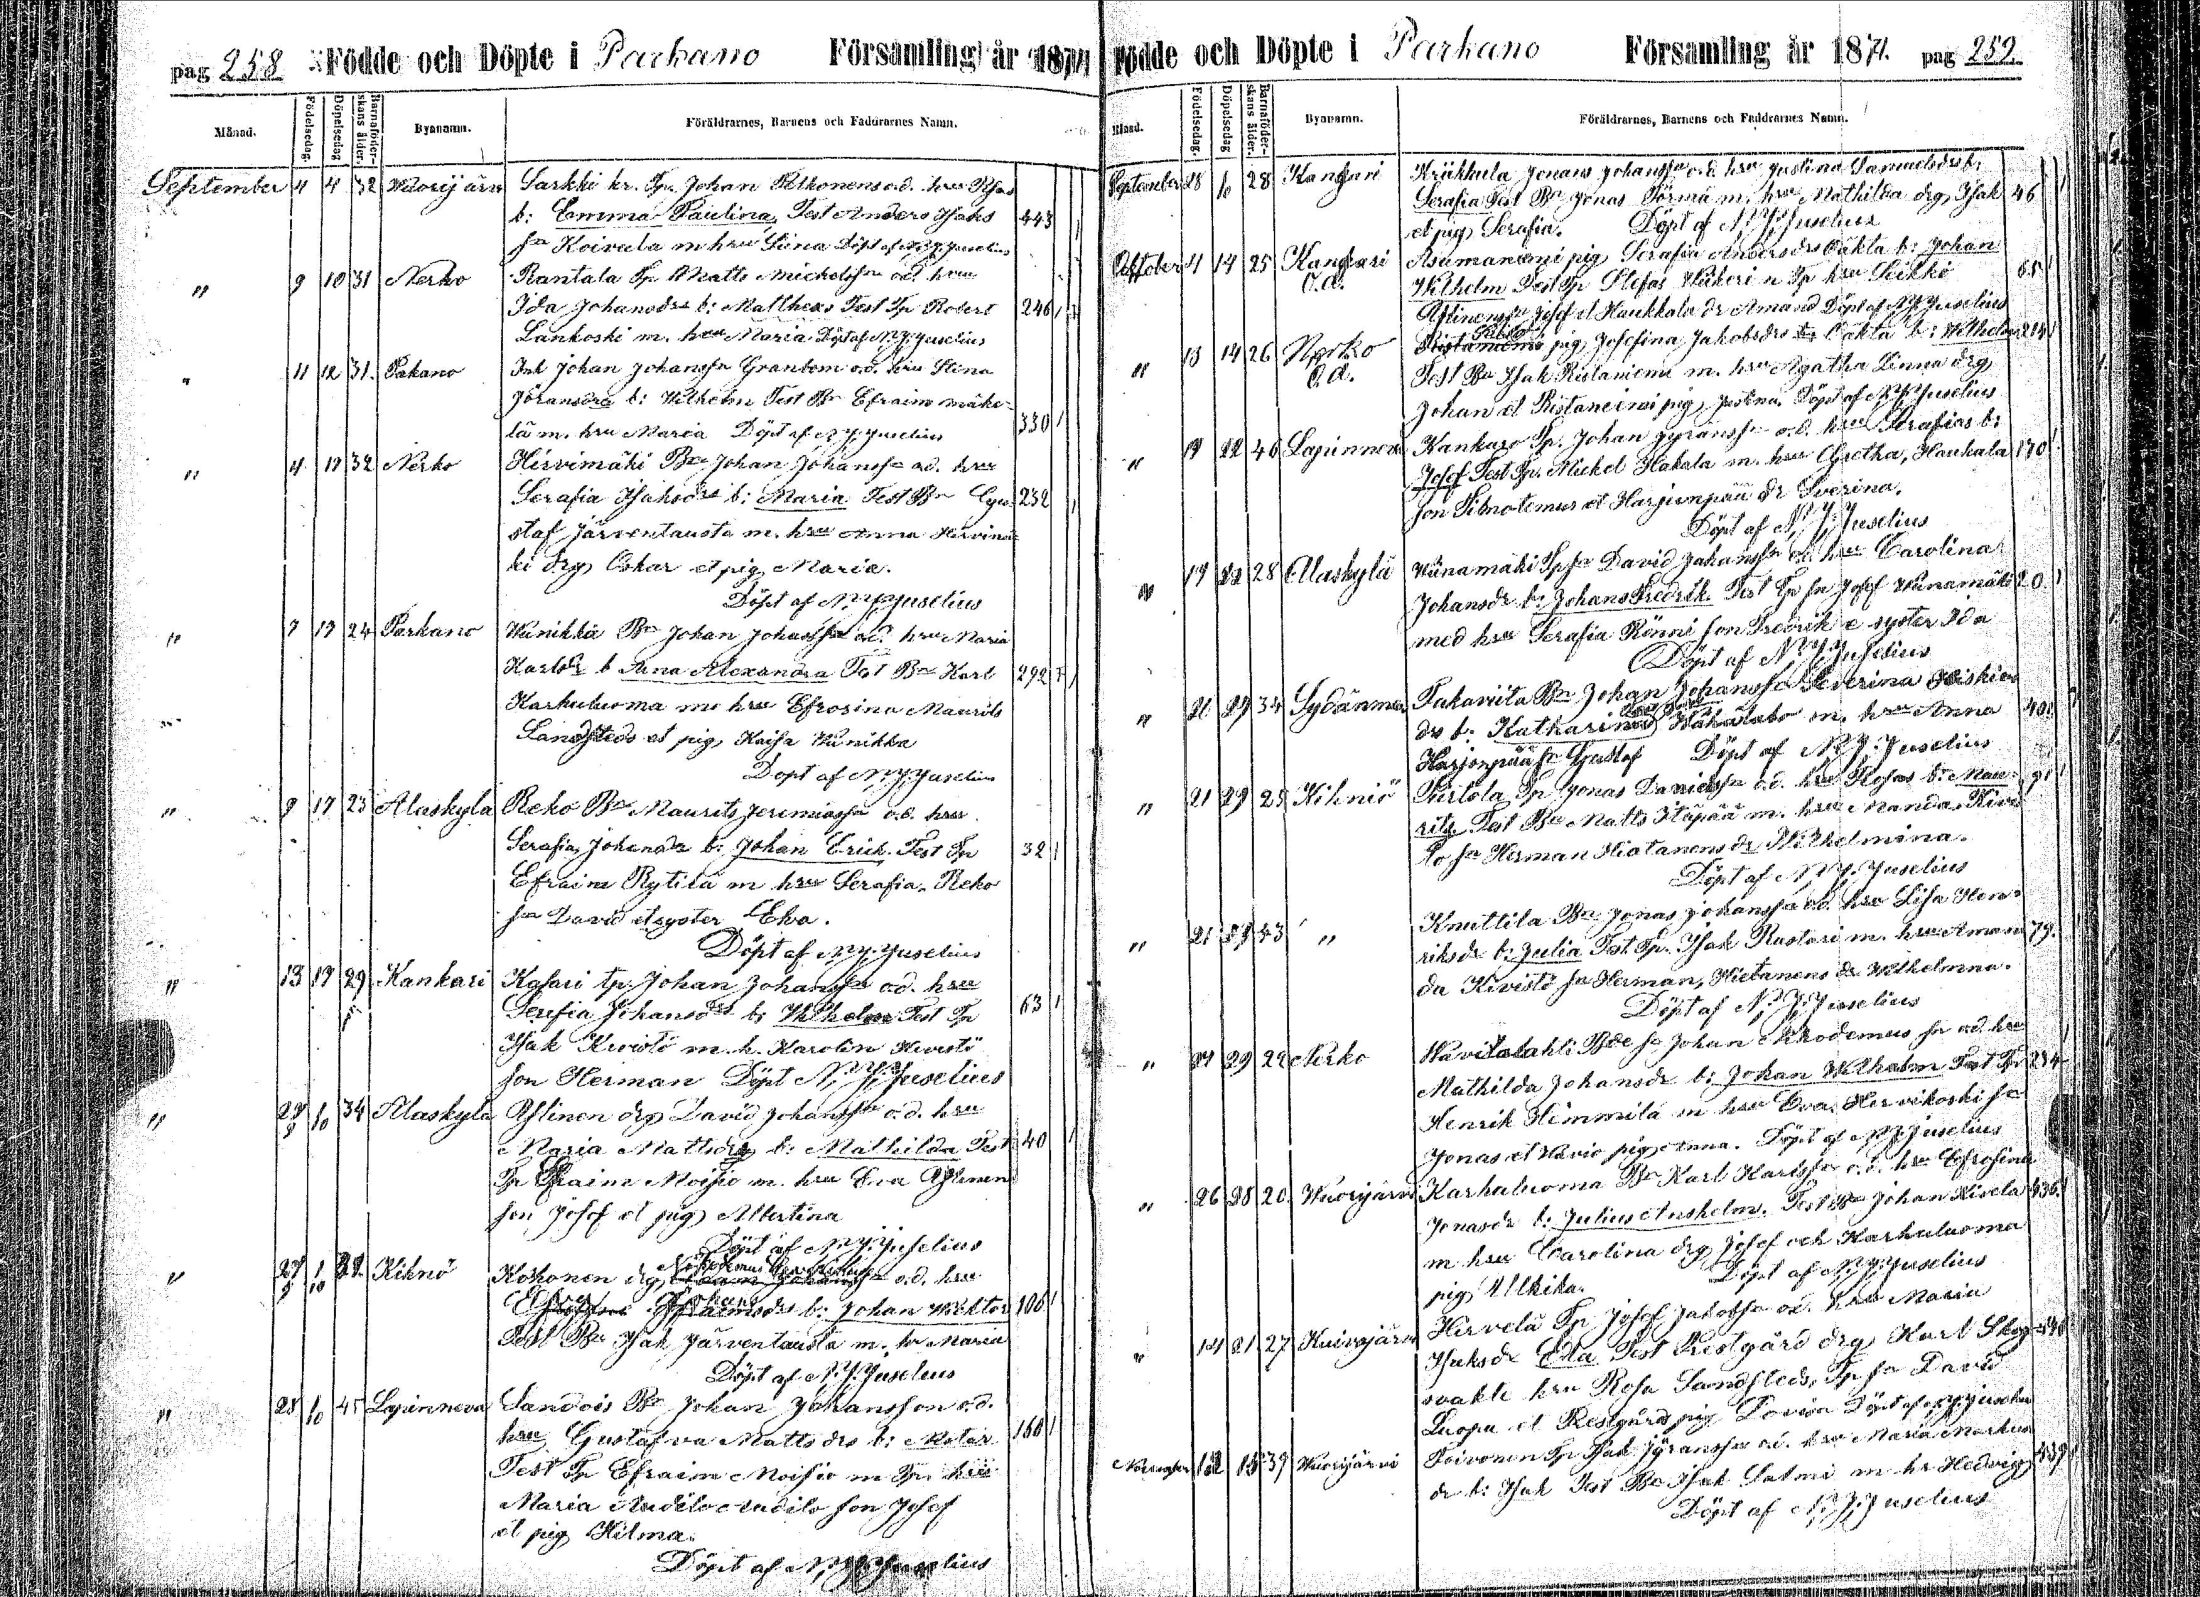 pag 258 Födde och Döpte i Parkano Församling år 1871
Månad. Födelsedag. Döpelsedag Barnaföderskans ålder. Byanamn. Föräldrarnes, Barnens och Faddrarnes Namn.
September 4 4 32 Wuorijärvi Sarkki kr. Tp. Johan Pelkonens o.d. hru Rosas
b: Emma Paulina, Test Anders Isaks 443
sn Koivula m hru Stina Döpt af N.J. Juselius
" 9 10 31 Nerko Rantala Tp. Matts Michelsson o.d. hru
Ida Johansdr b: Mattheas Test Tp Robert 246
Lankoski m. hru Maria Döpt af N.J. Juselius
" 11 12 31. Pakano Inh Johan Johansson Granbom o.d. hru Stina
Johansdra b: Wilhelm Test Bn Efraim mäke-
lä m. hru Maria Döpt af N.J. Juselius 330
" 4. 17 32 Nerko Hirvimäki Bn Johan Johansson o.d. hru
Serafia Isaksdr b: Maria Test Bn Gu- 232
staf Järventausta m. hru Anna Hirvimä-
ki drg Oskar et pig Maria.
Döpt af N.J. Juselius
" 7 17 24 Parkano Wunikka Bn Johan Johansson o.d. hru Maria
Karlsdr b Anna Alexandra Test Bn Karl 292
Karhuluoma m hru Efrosina Maurits
Sandsteds et pig Kaisa Wunikka
Döpt af N.J. Juselius
" 9 17 23 Alaskylä Reko Bn Maurits Jeremiasson o.d. hru
Serafia Johansdr b: Johan Erick. Test Tp 32
Efraim Rytilä m hru Serafia. Reko
sn David et syster Eva.
Döpt af N.J. Juselius
" 13 17 29 Kankari Kasari tp. Johan Johansson o.d. hru
Serafia Johansdr b: Wilhelm Test Tp 63
Isak Kivistö m. h. Karolin Kivistö
son Herman Döpt N.J. Juselius
" 27/9 1/10 34 Alaskylä Ahlinen drg David Johansson o.d. hru
Maria Mattsdr b: Mathilda Test 40
Tp Efraim Moisio m. hru Eva Ahlinen
son Josef et pig Albertina
Döpt af N.J. Juselius
" 27/9 1/10 22 Kihnö Kokonen drg o.d. hru
b: Johan Wiktor 106
Test Bn Isak Järventausta m. hr Maria
Döpt af N.J. Juselius
" 28 1/10 45 Lapinneva Sandois Bn Johan Johansson o.d.
hru Gustafva Matts drs b: 160
Test Tp Efraim Moisio m Tp. hru
Maria Andilo Andilo son Josef
et pig Hilma.
Döpt af N.J. Juselius
Födde och Döpte i Parkano Församling år 1871. pag 259.
Månad. Födelsedag. Döpelsedag Barnaföderskans ålder. Byanamn. Föräldrarnes, Barnens och Faddrarnes Namn.
September 28 1/10 28 Kankari Johansson o.d. hru Justina Samuelsdr b:
Serafia Test Bn Jonas Törmä m. hru Mathilda drg Isak 46
et pig Serafia. Döpt af N.J. Juselius
Oktober 4 14 25 Kankari Asumaniemi pig Serafia Andersdrs Oäkta b: Johan
O.ä. Wilhelm Test Tp Stefas Wäkeri n Tp hru Leikko 65
Josef et Haukkala dr Amand Döpt af N.J. Juselius
" 13 14 26 Nerko pig Josefina Jakobsdrs Oäkta b: Wilhelm 214
O.ä. Test Bn Isak Ristaniemi m. hru Agatha Linna drg
Johan et Ristaneimi pig Justina. Döpt af N.J. Juselius
" 19 22 46 Lapinneva Kankaro Tp. Johan Jyransson o.d. hru Serafias b:
Josef Test Tp. Mickel Hakala m. hru Gretha, Haukala 170
son et Harjunpää dr Sverina.
Döpt af N.J. Juselius
" 19 22 28 Alaskylä Wiinamäki Tp sn David Johansson o.d. hru Carolina
Johansdr b: Johans Fredrik. Test Tp sn Josef Wiinamäki 20
med hru Serafia Rönni son Fredrik e syster Ida
Döpt af N.J. Juselius
" 21 29 34 Sydänmaa Takaviita Bn Johan Johansson Severina Hiskias
dr b: Katharina m. hru Anna 401
Harjonpää sn Gustaf Döpt af N.J. Juselius
" 21 29 29 Kihniö Tp Jonas Davidsson o.d. hru Rosas b: Mau- 91
ritz Test Bn Matts Itäpää m. hru Manda. Kivis
tö sn Herman Hietanens dr Wilhelmina.
Döpt af N.J. Juselius
" 21 29 43 " Knuttila Bn Jonas Johansson o.d. hru Lisa Hen-
riksdr b: Julia Test Tp. Isak Rastari m. hru Aman 79.
da Kivistö sn Herman, Hietanens dr Wilhelmina.
Döpt af N.J. Juselius
" 27 29 22 Nerko Johan Nikodemus sn o.d. hru
Mathilda Johansdr b: Johan Wilhelm Test Tp 234
Henrik Himmilä m hru Eva, Hirvikoski sn
Jonas et Wavio pig Anna. Döpt af N.J. Juselius
" 26 28 20 Wuorijärvi Karhuluoma Bn Karl Karlsson o.d. hru Efrosina
Jonasdr b: Julius Anshelm. Test Bn Johan Hirvela 436.
m hru Carolina drg Josef och Karhuluoma
pig Ulkika. Döpt af N.J. Juselius
" 14 21 27 Kuivajärvi Hirvelä Tp Josef Jakobsson o.d. hru Maria
Isaksdr Eda Test Restgård drg Karl Skog-
svakt hru Rosa Sandsteds, Tp sn David
Luopa et Restgård pig Lovisa Döpt af N.J. Juselius
November 12 15 39 Wuorijärvi Toivonen Tp Isak Jyransson o.d. hru Maria Markus 439
dr b: Isak Test Bn Isak Salmi m hr Hedvig
Döpt af N.J. Juselius